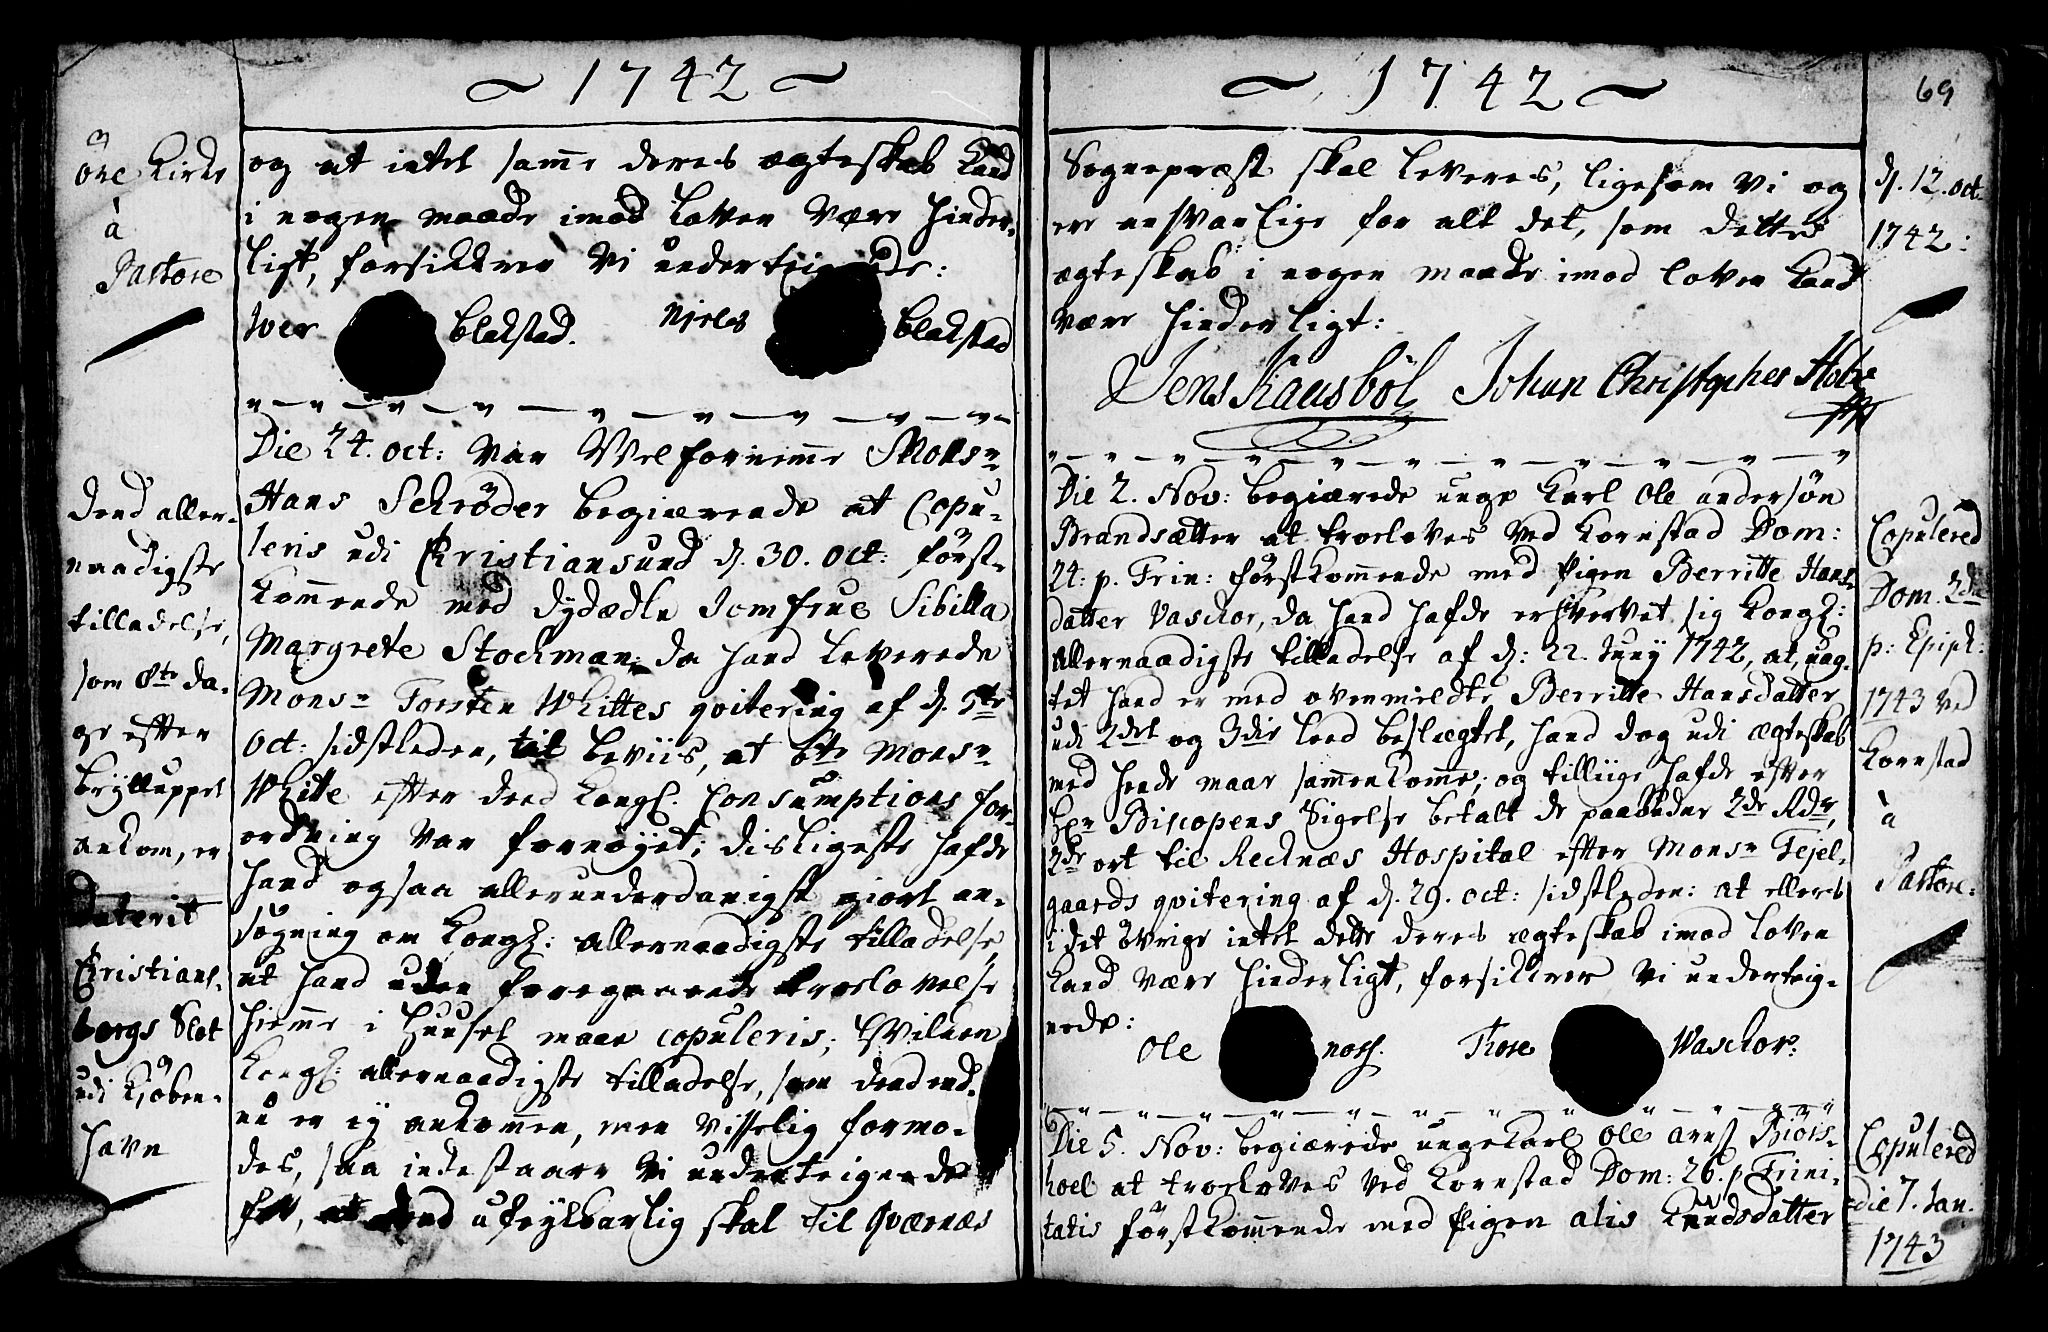 ~ 1742 ~
Öre Kirke
à
Pastore
og at intet samme deres ægteskab kand
i nogen maade imod Loven være hinder-
ligt, forsikkrer vi undertegnede:
Iver Blakstad. Niels Blakstad
Die 24. oct: var Velfornemme Monsr
Hans Schrøder begiærende at Copu-
leris udi Christiansund d. 30. oct: først-
kommende med Dydædle Jomfrue Sibilla
Margrete Stockman; da hand leverede
Monsr Torsten Whittes qvitering af d. 5te
oct: sidstleden, til beviis, at bte Monsr
White efter dend Kongl. Consumptions for-
ordning var fornøyet; disligeste hafde
hand ogsaa allerunderdanigst giort an-
søgning om Kongl: allernaadigste tilladelse
at hand uden foregaaende trolovelse
hiemme i Huuset maae copuleris; hvilken
Kongl: allernaadigste tilladelse, som dend end-
nu er ej ankommen, men visselig formo-
des, saa indestaar vi undertegnede
for, at dend ufeylbarlig skal til Qværnæs
Dend aller-
naadigste
tilladelse,
som 8te da-
ge efter
Brylluppet
ankom, er
Daterit
Christians-
borgs Slot
udi Kjøben-
havn
~ 1742 ~
69
Sognepræst skal leveres, ligesom vi og
er ansvarlige for alt det, som dette
ægteskab i nogen maade imod loven kand
være hinderligt:
Jens Kausböl Johan Christopher
d. 12. oct:
1742:
Die 2. Nov: begiærede unge Karl Ole andersøn
Brandsætter at troeloves ved Kornstad Dom:
24: p. Trin: førstkommende med Pigen Berritte Hans-
datter Vaschor, da hand hafde erhvervet sig Kongl:
allernaadigste tilladelse af d: 22. Juny 1742, at, uag-
tet hand er med ovenmeldte Berritte Hansdatter
udi 2det og 3die Leed beslægtet, hand dog udi ægteskab
med hende maae sammenkomme; og tilliige hafde efter
Hr Biscopens Sigelse betalt de paabudne 2de Rdr,
2de ort til Recknæs Hospital efter Monsr Tejel-
gaards qvitering af d. 29. oct: sidstleden: at ellers
i det övrige intet dette deres ægteskab imod loven
kand være hinderligt, forsikkrer vi underteig-
nede:
Ole Thore Waschor:
Copulered
Dom. 2da
p: Epiph:
1743 ved
Kornstad
à
Pastore:
Die 5. Nov: begiærede unge Karl Ole
at troeloves ved Kornstad Dom: 26. p Trini-
tatis førstkommende med Pigen alis Knudsdatter
Copulered
die 7. Jan.
1743